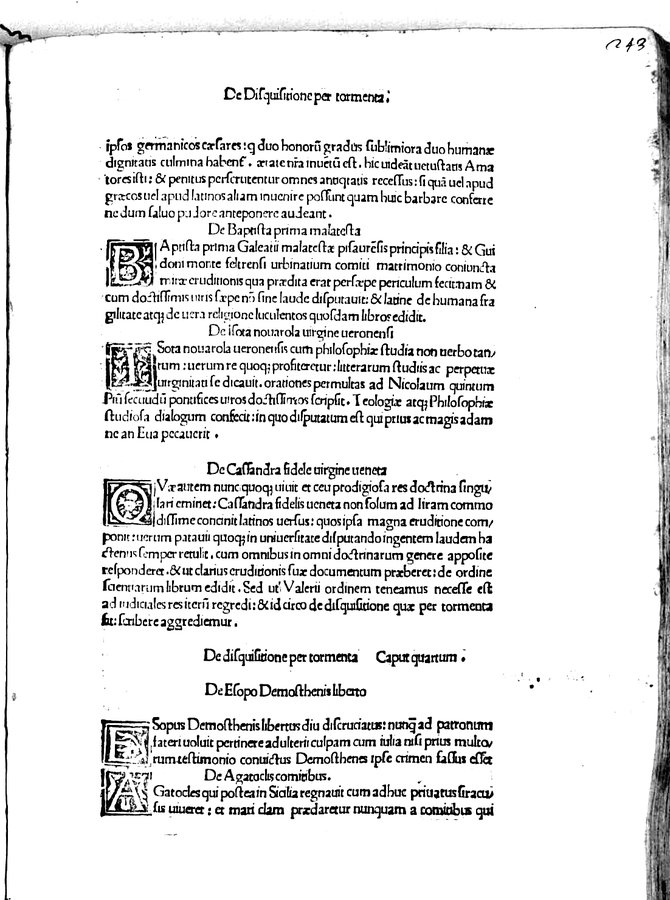 243
De Disquisitione per tormenta:
ipsos germanicos cæsares: q duo honorū gradus sublimiora duo humanæ
dignitatis culmina habent̃. ætate nr̃a inuētū est. hic uideāt uetustatis Ama
tores isti: & penitus perscrutentur omnes antiq̃tatis recessus: si quā uel apud
græcos uel apud latinos aliam inuenire possunt quam huic barbare conferre
ne dum saluo pudore anteponere audeant.
De Baptista prima malatesta
BAptista prima Galeatii malatestæ pisaurēsis principis filia: & Gui
doni monte feltrensi urbinatium comiti matrimonio coniuncta
miræ eruditionis qua prædita erat persæpe periculum fecit: nam &
cum doctissimis uiris sæpe nō sine laude disputauit: & latine de humana fra
gilitate atq; de uera religione luculentos quosdam libros edidit.
De isota nouarola uirgine ueronensi
ISota nouarola ueronensis cum philosophiæ studia non uerbo tan/
tum: uerum re quoq; profiteretur: litterarum studiis ac perpetuæ
uirginitati se dicauit. orationes permultas ad Nicolaum quintum
Piū secundū pontifices uiros doctissimos scripsit. Teologiæ atq; Philosophiæ
studiosa dialogum confecit: in quo disputatum est qui prius ac magis adam
ne an Eua peccauerit.
De Cassandra fidele uirgine ueneta
QVæ autem nunc quoq; uiuit et ceu prodigiosa res doctrina singu/
lari eminet: Cassandra fidelis ueneta non solum ad liram commo
dissime concinit latinos uersus: quos ipsa magna eruditione com/
ponit: uerum patauii quoq; in uniuersitate disputando ingentem laudem ha
ctenus semper retulit. cum omnibus in omni doctrinarum genere apposite
responderet. & ut clarius eruditionis suæ documentum præberet: de ordine
scientiarum librum edidit. Sed ut Valerii ordinem teneamus necesse est
ad iudiciales res iterū regredi: & id circo de disquisitione quæ per tormenta
fit: scribere aggrediemur.
De disquisitione per tormenta Caput quartum.
De Esopo Demosthenis liberto
ESopus Demosthenis libertus diu discruciatus: nunq̃ ad patronum
fateri uoluit pertinere adulterii culpam cum iulia nisi prius multo/
rum testimonio conuictus Demosthenes ipse crimen fassus esset
De Agatoclis comitibus.
AGatocles qui postea in Sicilia regnauit cum adhuc priuatus siracu/
sis uiueret: et mari clam prædaretur nunquam a comitibus qui